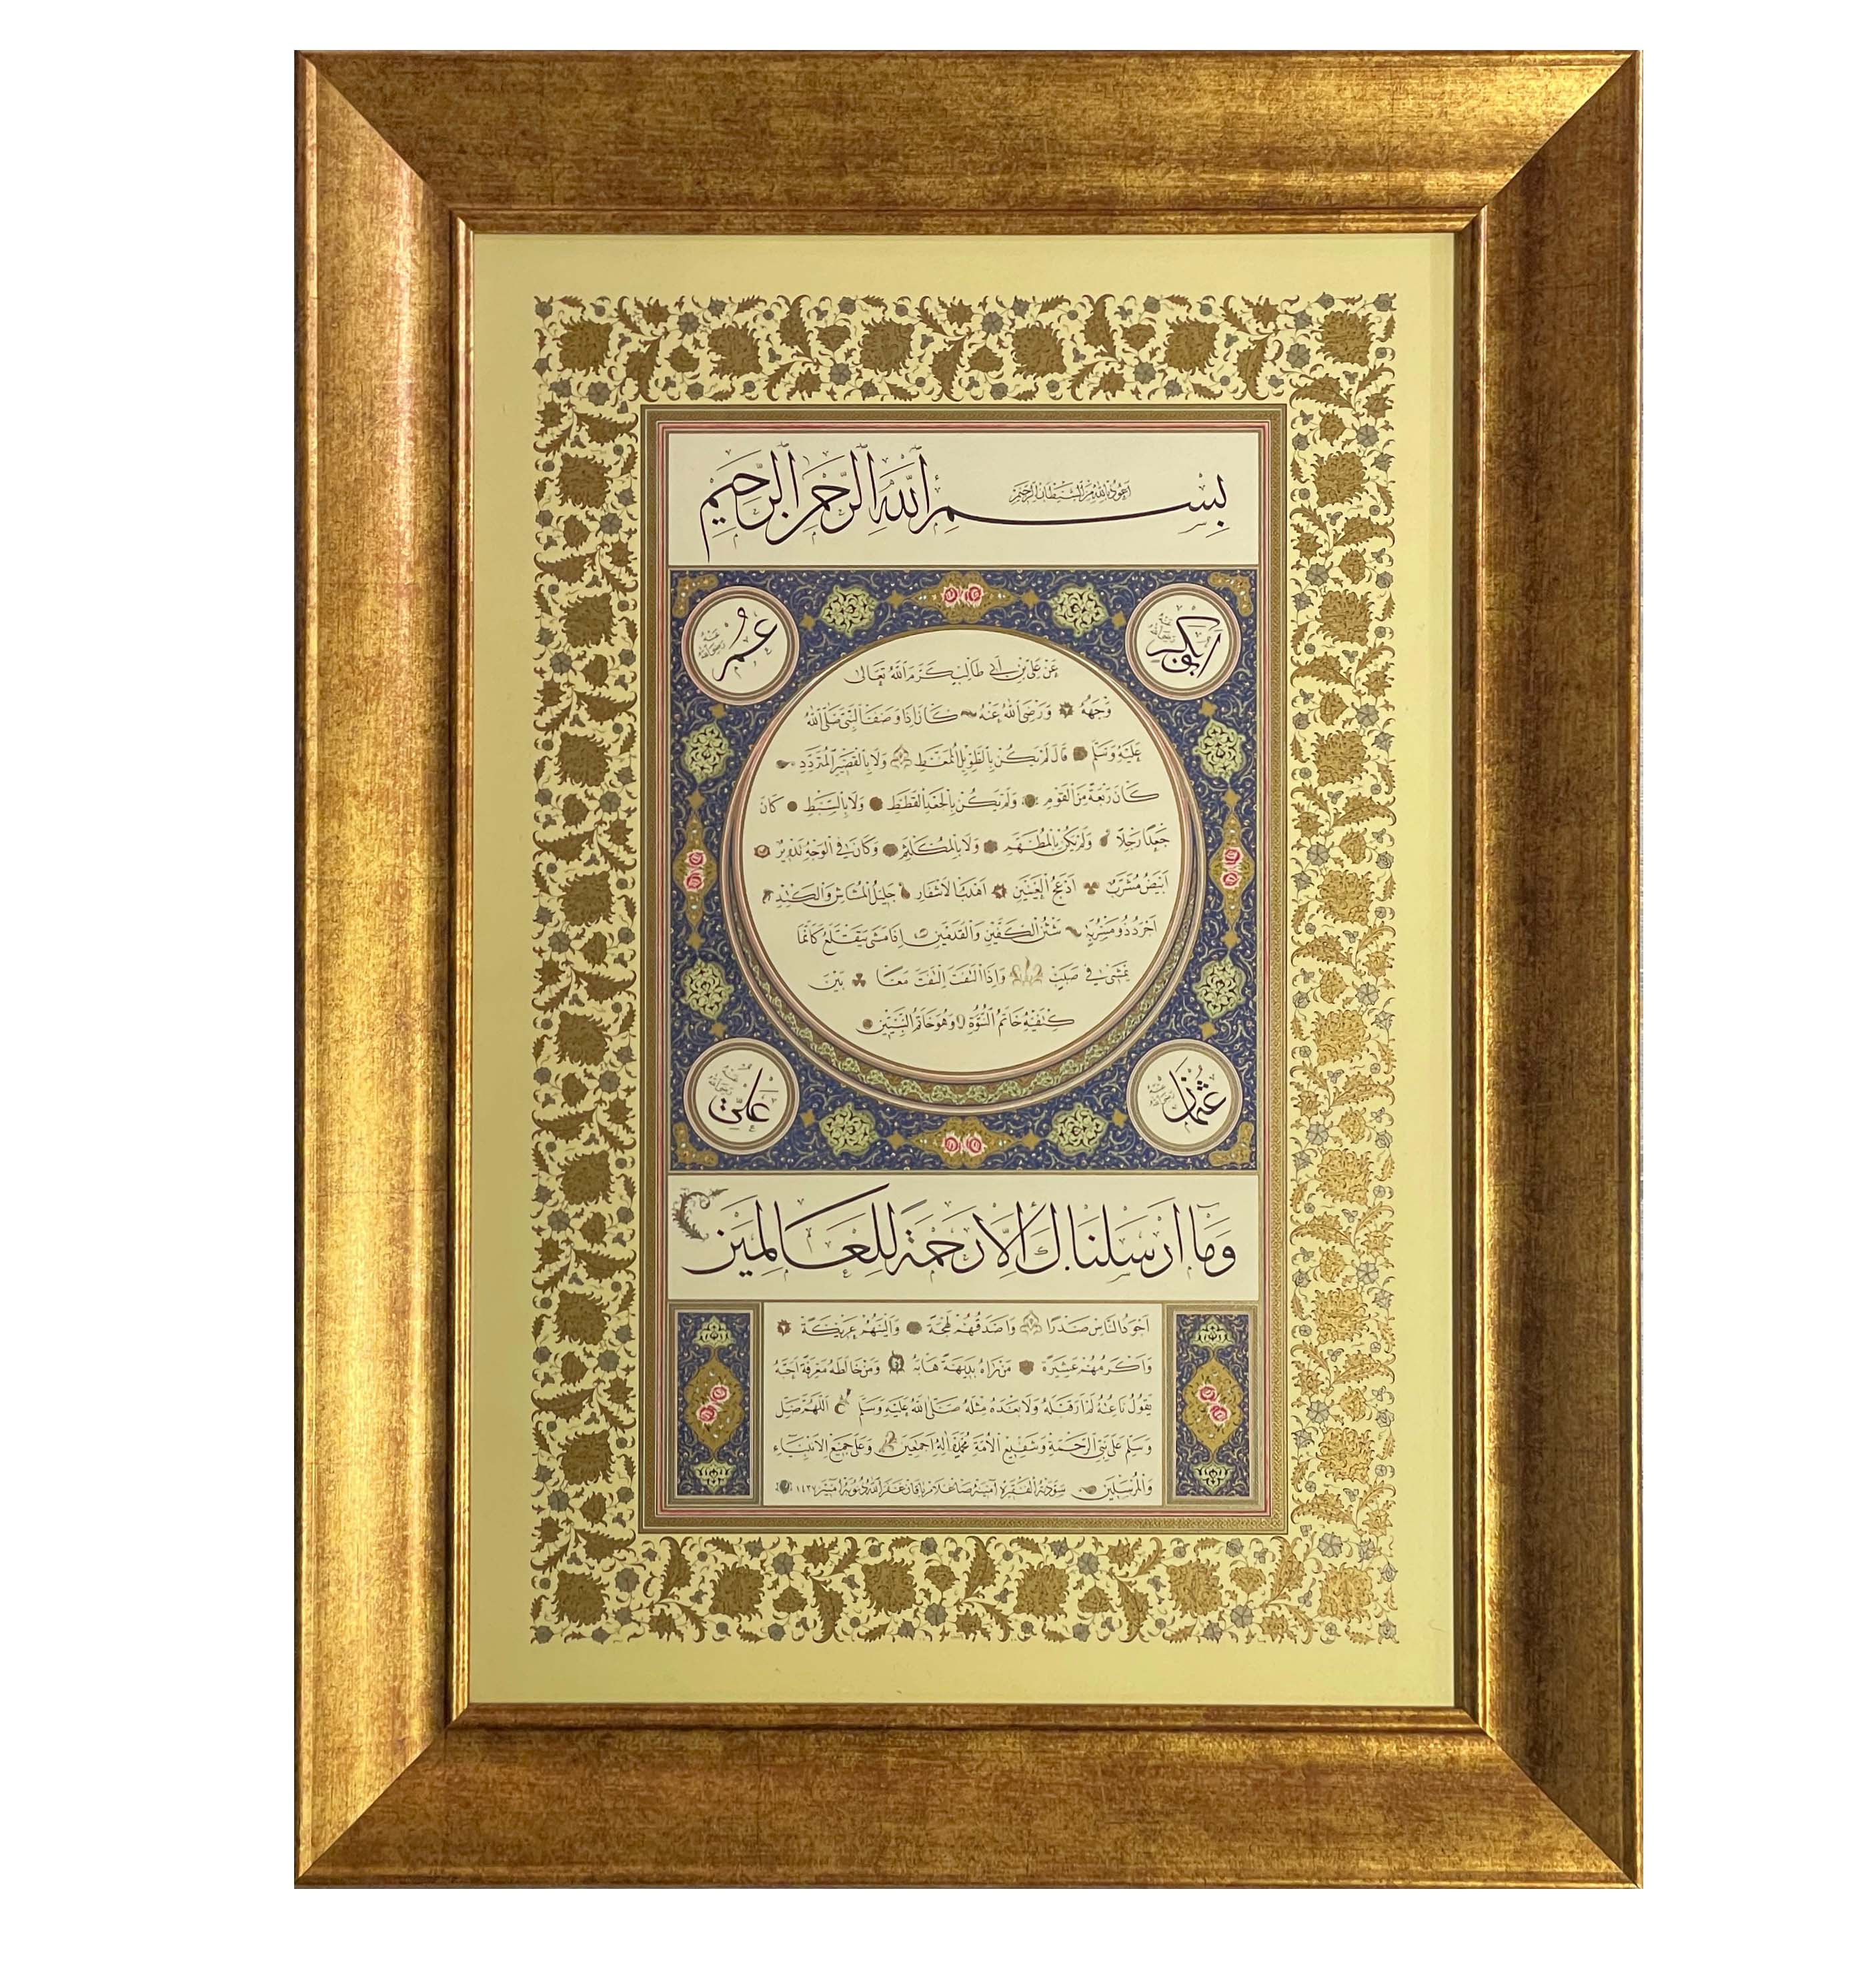 بِسْمِ اللّٰهِ الرَّحْمٰنِ الرَّحِيمِ
اَعُوذُ بِاللّٰهِ مِنَ الشَّيْطَانِ الرَّجِيمِ
اَبُو بَكْر رضى الله عنه
عُمَرْ رضى الله عنه
عَنْ عَلِىِّ بْنِ اَبِى طَالِبٍ كَرَّمَ اللّٰهُ تَعَالٰى
وَجْهَهُ وَرَضِىَ اللّٰهُ عَنْهُ كَانَ اِذَا وَصَفَ النَّبِىَّ صَلَّى اللّٰهُ
عَلَيْهِ وَسَلَّمَ قَالَ لَمْ يَكُنْ بِالطَّوِيلِ الْمُمَغَّطِ وَلَا بِالْقَصِيرِ الْمُتَرَدِّدِ
كَانَ رَبْعَةً مِنَ الْقَوْمِ وَلَمْ يَكُنْ بِالْجَعْدِ الْقَطَطِ وَلَا بِالسَّبْطِ كَانَ
جَعْدًا رَجِلًا وَلَمْ يَكُنْ بِالْمُطَهَّمِ وَلَا بِالْمُكَلْثَمِ وَكَانَ فِى الْوَجْهِ تَدْوِيرٌ
اَبْيَضُ مُشْرَبٌ اَدْعَجُ الْعَيْنَيْنِ اَهْدَبُ الْاَشْفَارِ جَلِيلُ الْمُشَاشِ وَالْكَتَدِ
اَجْرَدُ ذُو مَسْرُبَةٍ شَثْنُ الْكَفَّيْنِ وَالْقَدَمَيْنِ اِذَا مَشٰى يَتَقَلَّعُ كَاَنَّمَا
يَمْشِى فِى صَبَبٍ وَاِذَا الْتَفَتَ الْتَفَتَ مَعًا بَيْنَ
كَتِفَيْهِ خَاتَمُ النُّبُوَّةِ وَهُوَ خَاتَمُ النَّبِيِّينَ
عُثْمَانْ رضى الله عنه
عَلِىّ رضى الله عنه
وَمَا اَرْسَلْنَاكَ اِلَّا رَحْمَةً لِلْعَالَمِينَ
اَجْوَدُ النَّاسِ صَدْرًا وَاَصْدَقُهُمْ لَهْجَةً وَاَلْيَنُهُمْ عَرِيكَةً
وَاَكْرَمُهُمْ عَشِيرَةً مَنْ رَاٰهُ بَدِيهَةً هَابَهُ وَمَنْ خَالَطَهُ مَعْرِفَةً اَحَبَّهُ
يَقُولُ نَاعِتُهُ لَمْ اَرَ قَبْلَهُ وَلَا بَعْدَهُ مِثْلَهُ صَلَّى اللّٰهُ عَلَيْهِ وَسَلَّمَ اَللّٰهُمَّ صَلِّ
وَسَلِّمْ عَلٰى نَبِىِّ الرَّحْمَةِ وَشَفِيعِ الْاُمَّةِ مُحَمَّدٍ وَاٰلِهِ اَجْمَعِينَ وَعَلٰى جَمِيعِ الْاَنْبِيَاءِ
وَالْمُرْسَلِينَ سَوَّدَتْهُ الْفَقِيرَةُ غَفَرَ اللّٰهُ ذُنُوبَهَا آمين ١٤٢٧